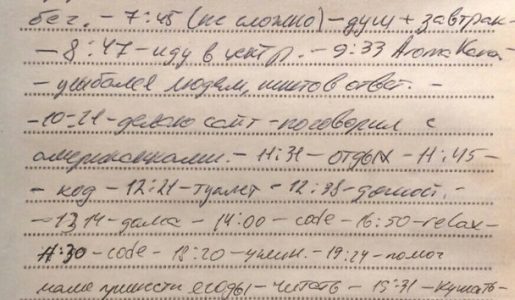 бег. - 7:45 (не сложно) - душ + завтрак -
- 8:47 - иду в центр. - 9:33 Aroma Kava -
- улыбался людям, никто в ответ. -
- 10:21 - делаю сайт - поговорил с
американцами. - 11:31 - отдых - 11:45 -
- код - 12:21 - туалет - 12:38 - домой. -
- 13,14 - дома - 14:00 - code - 16:50 - relax -
17:30 - code - 18:20 - ужин. - 19:24 - помог
маме принести ягоды - читать - 19:31 - кушать -